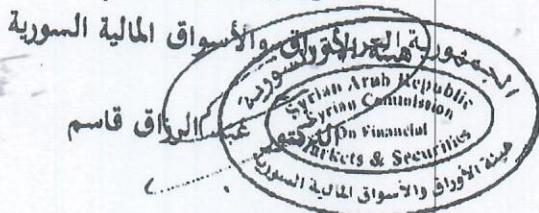 هيئة الأوراق والأسواق المالية السورية
الدكتور عبد الرزاق قاسم
الجمهورية العربية السورية
Syrian Arab Republic
Syrian Commission
On Financial
Markets & Securities
هيئة الأوراق والأسواق المالية السورية